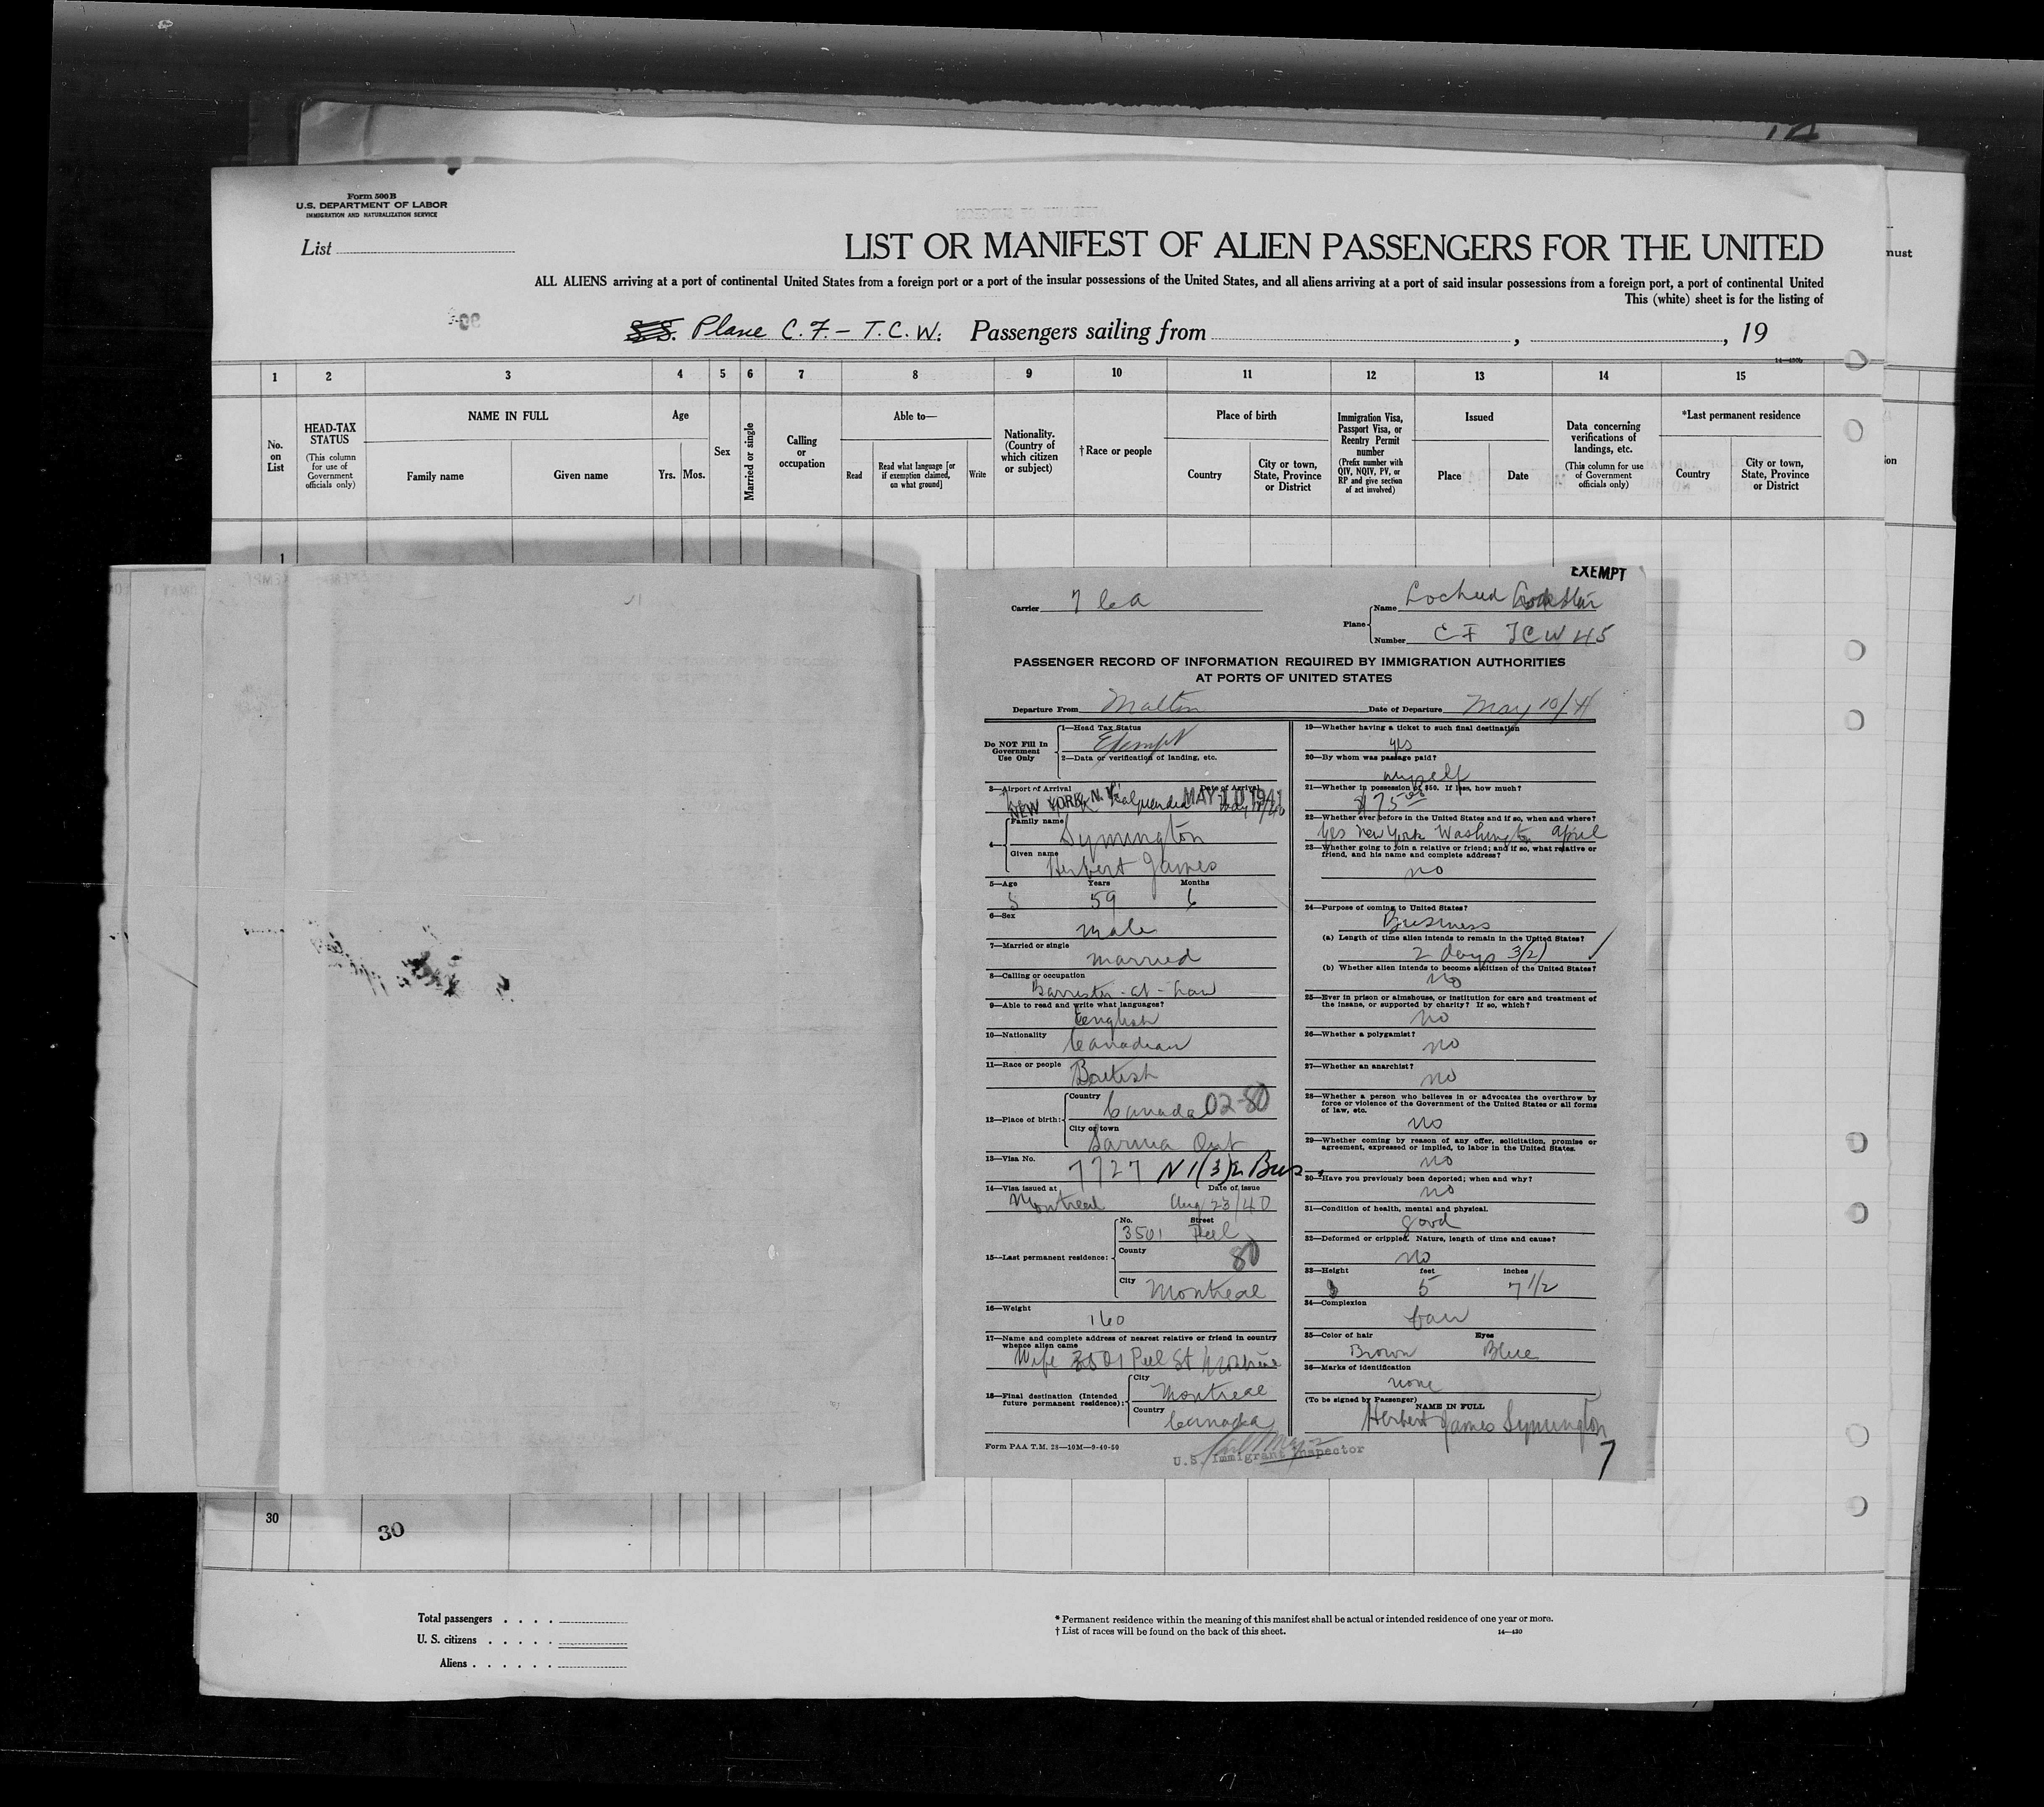 Form 500 B
U.S. DEPARTMENT OF LABOR
IMMIGRATION AND NATURALIZATION SERVICE
List
LIST OR MANIFEST OF ALIEN PASSENGERS FOR THE UNITED
ALL ALIENS arriving at a port of continental United States from a foreign port or a port of the insular possessions of the United States, and all aliens arriving at a port of said insular possessions from a foreign port, a port of continental United
This (white) sheet is for the listing of
must
S.S. Plane C.F.- T.C.W. Passengers sailing from , , 19
1 2 3 4 5 6 7 8 9 10 11 12 13 14 15
No. on List
HEAD-TAX STATUS
(This column for use of Government officials only)
NAME IN FULL
Family name Given name
Age
Yrs. Mos.
Sex
Married or single
Calling or occupation
Able to—
Read
Read what language [or if exemption claimed, on what ground]
Write
Nationality. (Country of which citizen or subject)
†Race or people
Place of birth
Country
City or town, State, Province or District
Immigration Visa, Passport Visa, or Reentry Permit number
(Prefix number with QIV, NQIV, PV, or RP and give section of act involved)
Issued
Place Date
Data concerning verifications of landings, etc.
(This column for use of Government officials only)
*Last permanent residence
Country
City or town, State, Province or District
1
EXEMPT
Carrier T C A
Plane Name Lockheed
Number CF TCW 45
PASSENGER RECORD OF INFORMATION REQUIRED BY IMMIGRATION AUTHORITIES
AT PORTS OF UNITED STATES
Departure From Malton Date of Departure May 10/41
Do NOT Fill In Government Use Only
1—Head Tax Status
Exempt
2—Data or verification of landing, etc.
3—Airport of Arrival Date of Arrival
NEW YORK, N.Y. MAY 10 1941
4— Family name Symington
Given name Herbert James
5—Age Years Months
59 6
6—Sex
male
7—Married or single
married
8—Calling or occupation
Barrister-at-Law
9—Able to read and write what languages?
English
10—Nationality
Canadian
11—Race or people
British
12—Place of birth: Country Canada 02-80
City or town
Sarnia Ont
13—Visa No.
7727 N 1(3)2 Bus.
14—Visa issued at Date of issue
Montreal Aug 23/40
15—Last permanent residence: No. Street
3501 Peel
County 80
City Montreal
16—Weight
160
17—Name and complete address of nearest relative or friend in country
whence alien came
Wife 3501 Peel St Montreal
18—Final destination (Intended
future permanent residence): City
Montreal
Country
Canada
Form PAA T.M. 28—10M—9-40-50
19—Whether having a ticket to such final destination
yes
20—By whom was passage paid?
myself
21—Whether in possession of $50. If less, how much?
$75
22—Whether ever before in the United States and if so, when and where?
Yes New York Washington April
23—Whether going to join a relative or friend; and if so, what relative or
friend, and his name and complete address?
no
24—Purpose of coming to United States?
Business
(a) Length of time alien intends to remain in the United States?
2 days 3(2)
(b) Whether alien intends to become a citizen of the United States?
no
25—Ever in prison or almshouse, or institution for care and treatment of
the insane, or supported by charity? If so, which?
no
26—Whether a polygamist?
no
27—Whether an anarchist?
no
28—Whether a person who believes in or advocates the overthrow by
force or violence of the Government of the United States or all forms
of law, etc.
no
29—Whether coming by reason of any offer, solicitation, promise or
agreement, expressed or implied, to labor in the United States.
no
30—Have you previously been deported; when and why?
no
31—Condition of health, mental and physical.
good
32—Deformed or crippled. Nature, length of time and cause?
no
33—Height feet inches
5 7 1/2
34—Complexion
fair
35—Color of hair Eyes
Brown Blue
36—Marks of identification
none
(To be signed by Passenger)
NAME IN FULL
Herbert James Symington
U.S. Immigrant Inspector
7
30 30
Total passengers
U. S. citizens
Aliens
* Permanent residence within the meaning of this manifest shall be actual or intended residence of one year or more.
† List of races will be found on the back of this sheet. 14—430